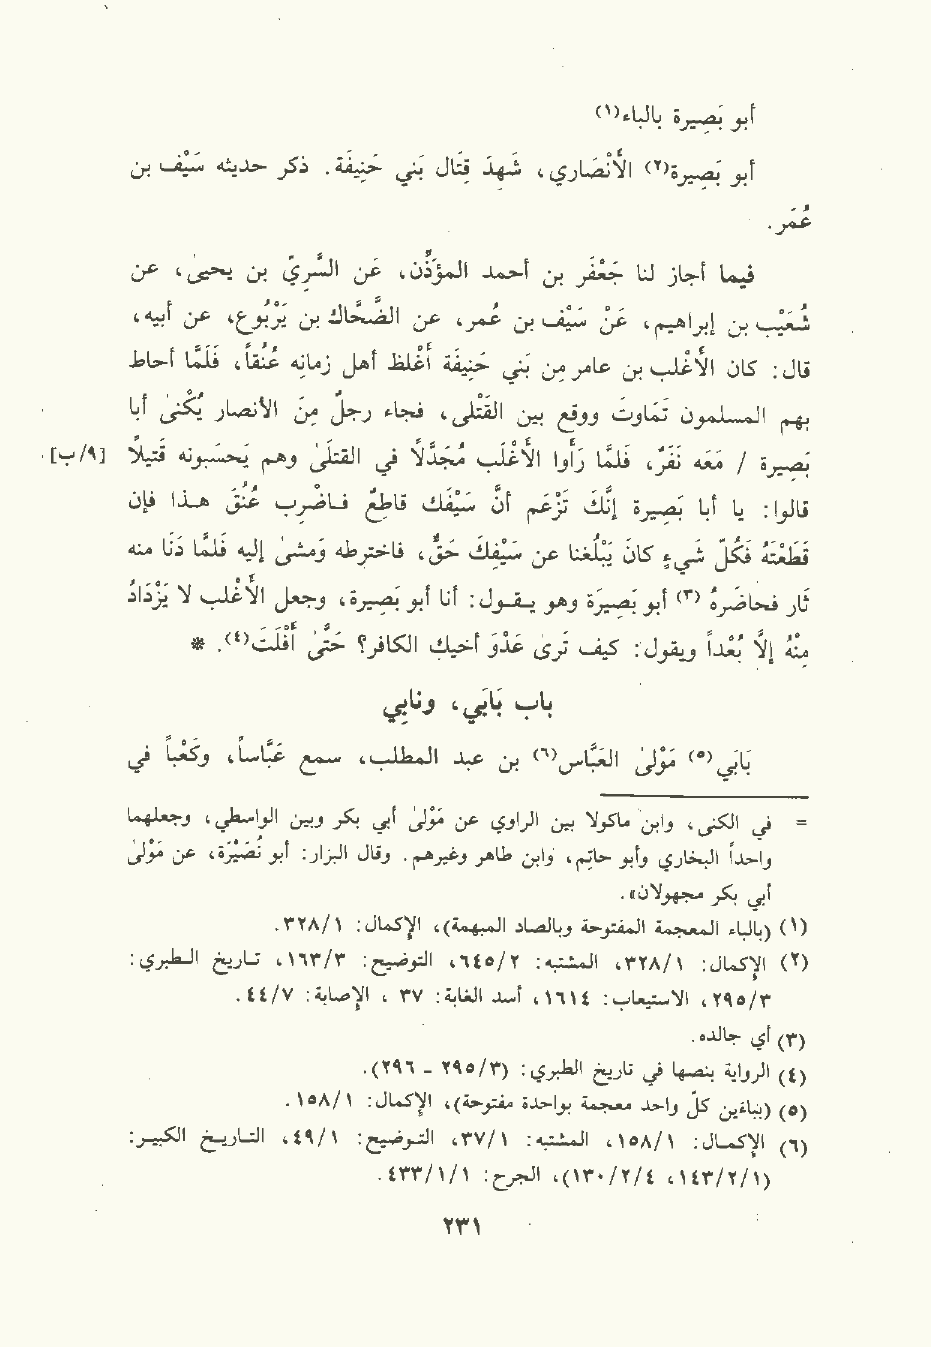 أبو بَصِيرة بالباء(١)
أبو بَصِيرة(٢) الأَنْصَاري، شَهِدَ قِتَال بَني حَنِيفَة. ذكر حديثه سَيْف بن
عُمَر.
فيما أجاز لنا جَعْفَر بن أحمد المؤَذِّن، عَن السَّرِيّ بن يحيىٰ، عن
شُعَيْب بن إبراهيم، عَنْ سَيْف بن عُمر، عن الضَّحَّاك بن يَرْبُوع، عن أبيه،
قال: كان الأَغْلب بن عامر مِن بَني حَنِيفَة أَغْلظ أهل زمانِه عُنُقاً، فَلَمَّا أحاط
بهم المسلمون تَمَاوتَ ووقع بين القَتْلى، فجاء رجلٌ مِن الأنصار يُكَنىٰ أبا
بَصِيرة / مَعَه نَفَرٌ، فلَمَّا رأَوا الأَغْلَب مُجَدَّلاً في القتلَىٰ وهم يَحسَبونه قَتيلاً [٩/ب]
قالوا: يا أبا بَصِيرة إنَّك تَزْعَم أنَّ سَيْفَك قاطعٌ فـاضْرب عُنُقَ هـذا فإن
قَطَعْتَهُ فَكُلّ شَيءٍ كانَ يَبْلُغنا عن سَيْفِكَ حَقٌ، فاخترطه ومَشىٰ إليه فَلمَّا دَنَا منه
ثَار فحاضَرهُ(٣) أبو بَصِيرَة وهو يقـول: أنا أبو بَصِيرة، وجعل الأَغْلب لا يَزْدَادُ
مِنْهُ إلاَّ بُعْداً ويقول: كيف تَرىٰ عَدْوَ أخيك الكافر؟ حَتَّىٰ أَفْلَتَ(٤). *
باب بَابَي، ونابِي
بَابَي(٥) مَوْلىٰ العَبَّاس(٦) بن عبد المطلب، سمع عَبَّاساً، وكَعْباً في
= في الكنىٰ، وابن ماكولا بين الراوي عن مَوْلَىٰ أبي بكر وبين الواسطي، وجعلهما
واحداً البخاري وأبو حاتِم، وابن طاهر وغيرهم. وقال البزار: أبو نُصَيْرَة، عن مَوْلىٰ
أبي بكر مجهولان».
(١) (بالباء المعجمة المفتوحة وبالصاد المبهمة)، الإكمال: ٣٢٨/١.
(٢) الإكمال: ٣٢٨/١، المشتبه: ٦٤٥/٢، التوضيح: ١٦٣/٣، تـاريخ الـطبري:
٢٩٥/٣، الاستيعاب: ١٦١٤، أسد الغابة: ٣٧ ، الإصابة: ٤٤/٧.
(٣) أي جالده.
(٤) الرواية بنصها في تاريخ الطبري: (٢٩٥/٣ - ٢٩٦).
(٥) (بباءين كلّ واحد معجمة بواحدة مفتوحة)، الإكمال: ١٥٨/١.
(٦) الإكمـال: ١٥٨/١، المشتبه: ٣٧/١، التـوضيح: ٤٩/١، التـاريـخ الكبيـر:
(١٤٣/٢/١، ١٣٠/٢/٤)، الجرح: ٤٣٣/١/١.
٢٣١